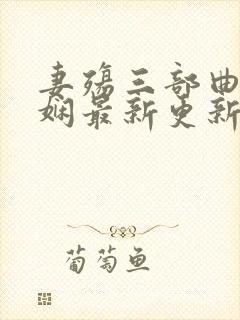 妻殇三部曲
娴最新更新
葡萄鱼